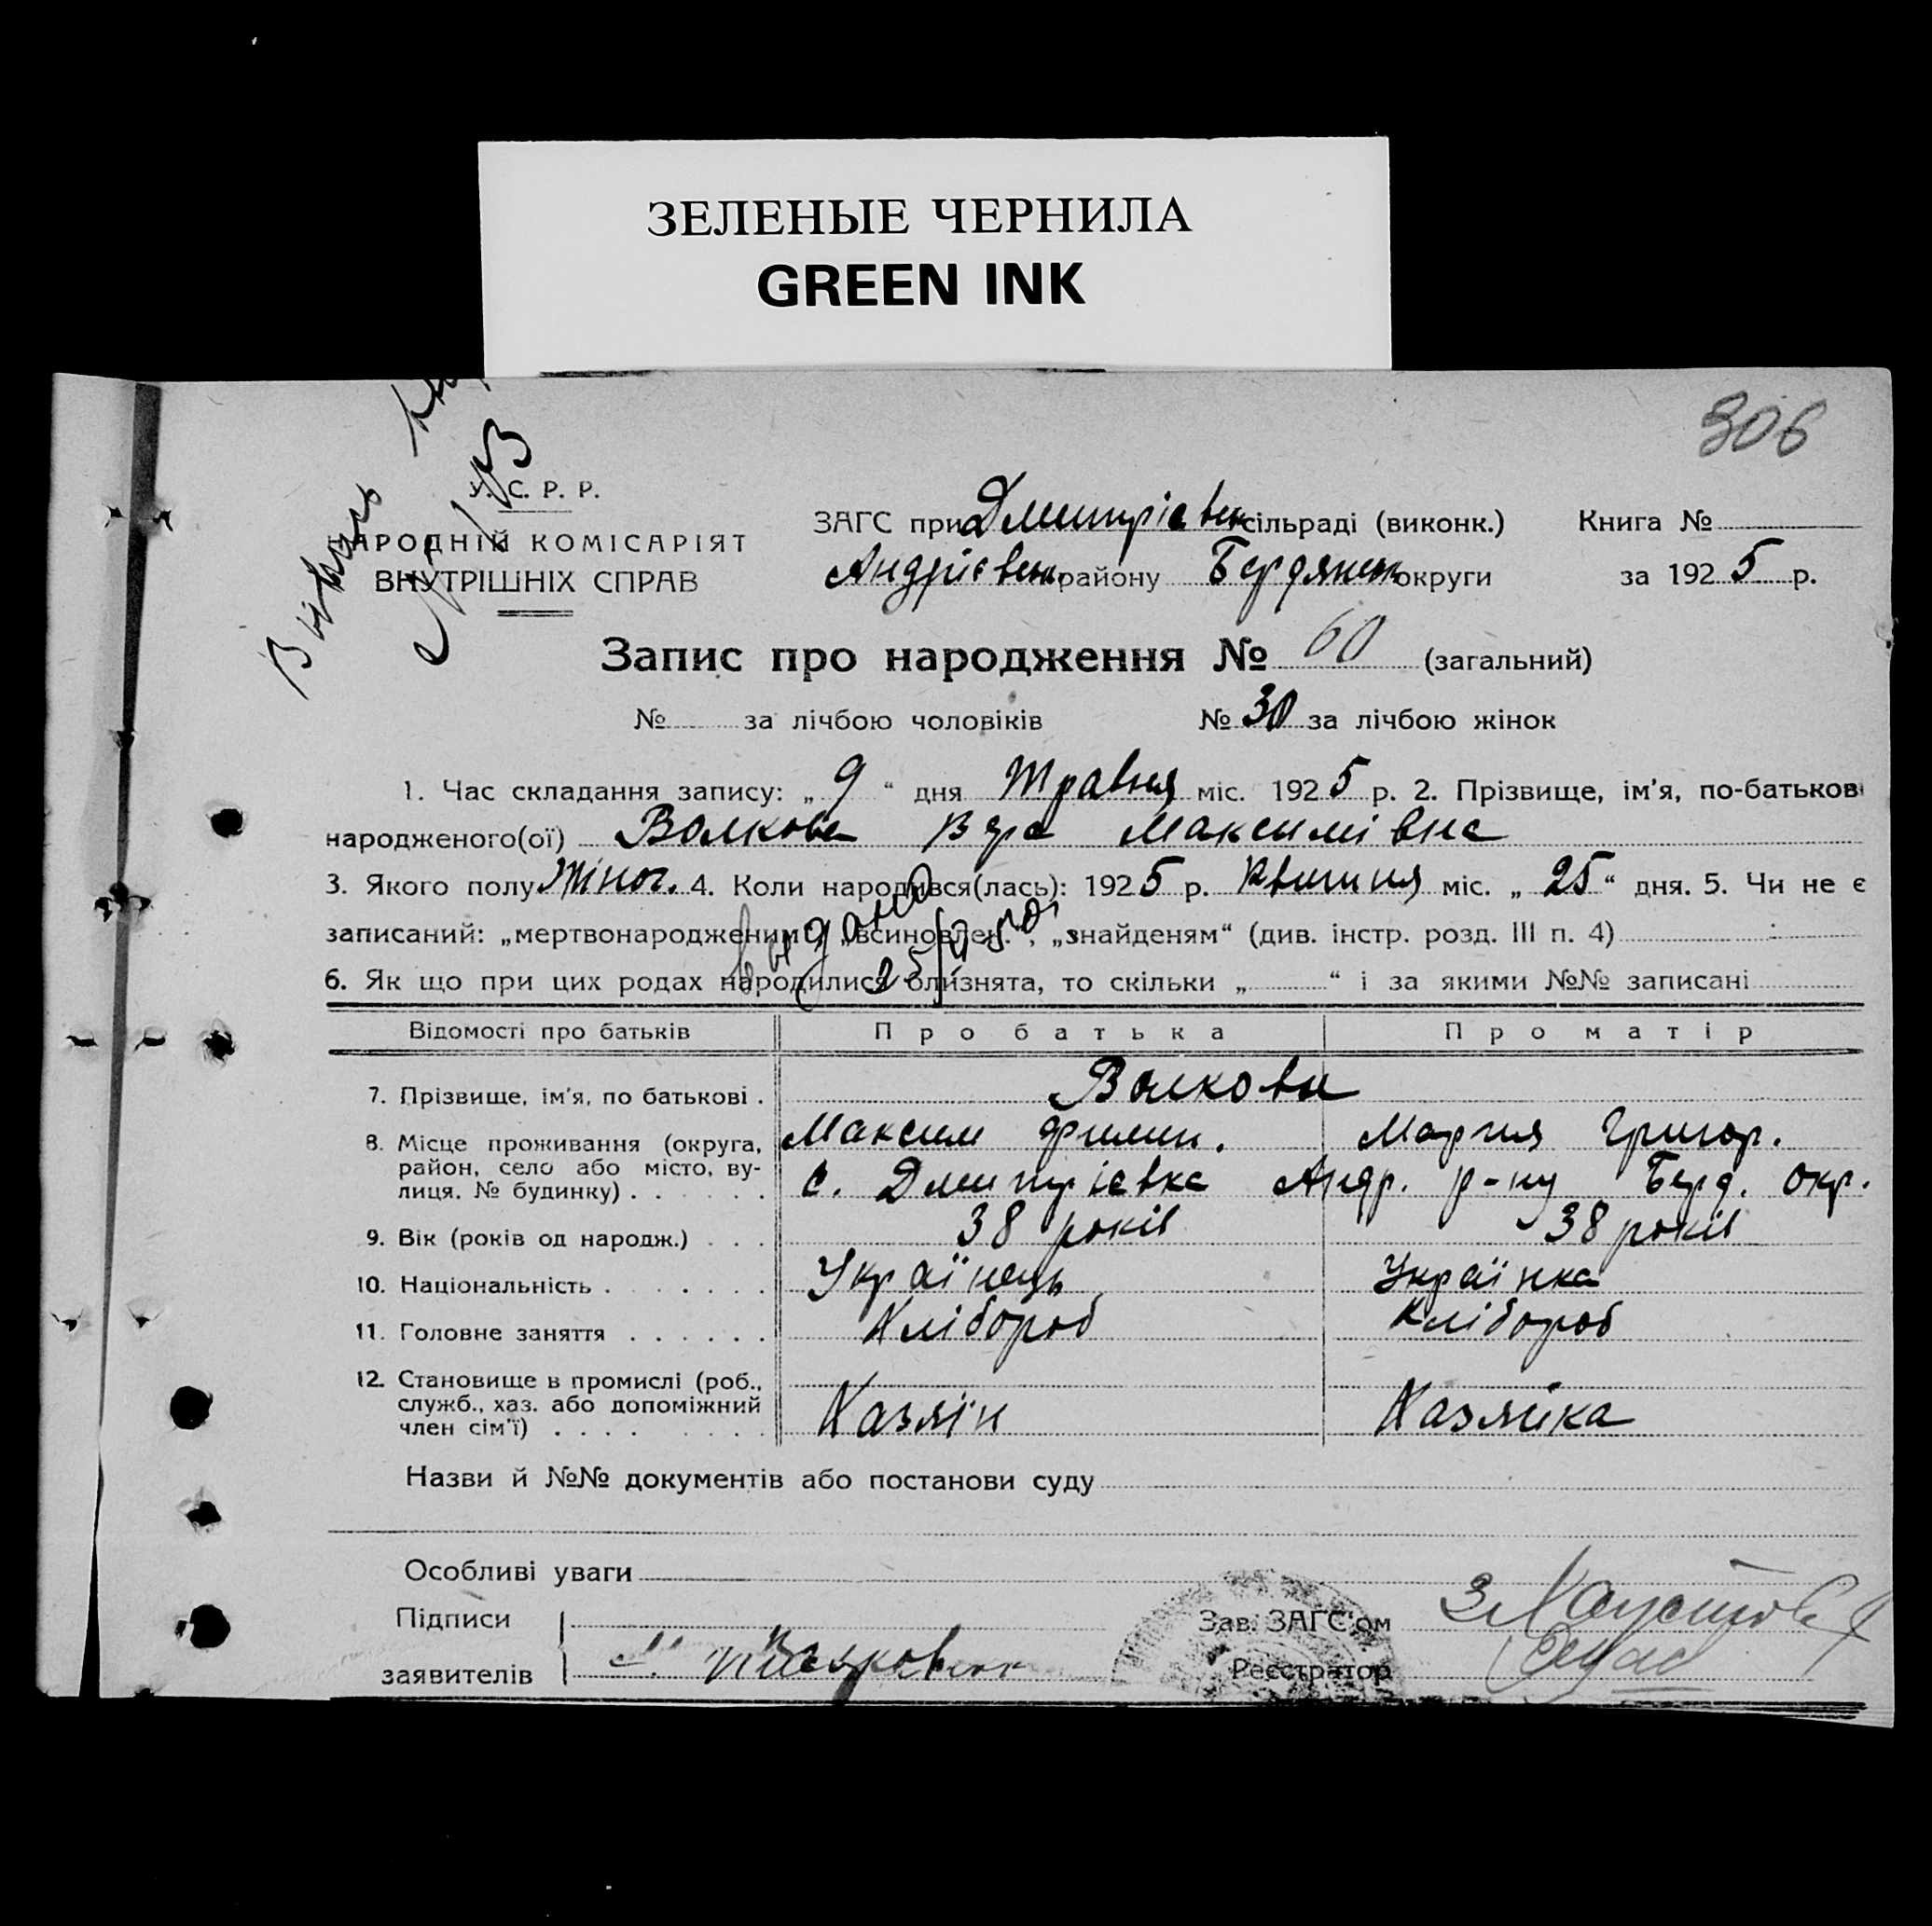 ЗЕЛЕНЫЕ ЧЕРНИЛА
GREEN INK
306
У. С. Р. Р.
НАРОДНІЙ КОМІСАРІЯТ
ВНУТРІШНІХ СПРАВ
ЗАГС при Дмитрієвск сільраді (виконк.) Книга №
Андрієвск. району Бердянськ округи за 1925 р.
Запис про народження № 60 (загальний)
№ за лічбою чоловіків № 30 за лічбою жінок
1. Час складання запису: „ 9 “ дня Травня міс. 1925 р. 2. Прізвище, ім'я, по-батькові
народженого(ої) Волкова Вєра Максимівна
3. Якого полу Жіноч. 4. Коли народився(лась): 1925 р. Квитня міс. „ 25 “ дня. 5. Чи не є
записаний: „мертвонародженим“, „всиновлен.“, „знайденям“ (див. інстр. розд. III п. 4)
видано
6. Як що при цих родах народилися близнята, то скільки „ “ і за якими №№ записані
Відомості про батьків Про батька Про матір
7. Прізвище, ім'я, по батькові . Волкови
Максим Филип. Мария Григор.
8. Місце проживання (округа, район, село або місто, вулиця. № будинку) . . . . . . с. Дмитрієвка Андр. р-ну Берд. окр.
9. Вік (років од народж.) . . . 38 років 38 років
10. Національність . . . . . . . Українець Українка
11. Головне заняття . . . . . . Хлібороб Хлібороб
12. Становище в промислі (роб., служб., хаз. або допоміжний член сім'ї) . . . . . . . . Хазяїн Хазяйка
Назви й №№ документів або постанови суду
Особливі уваги
Підписи
заявителів
Зав. ЗАГС'ом
Реєстратор